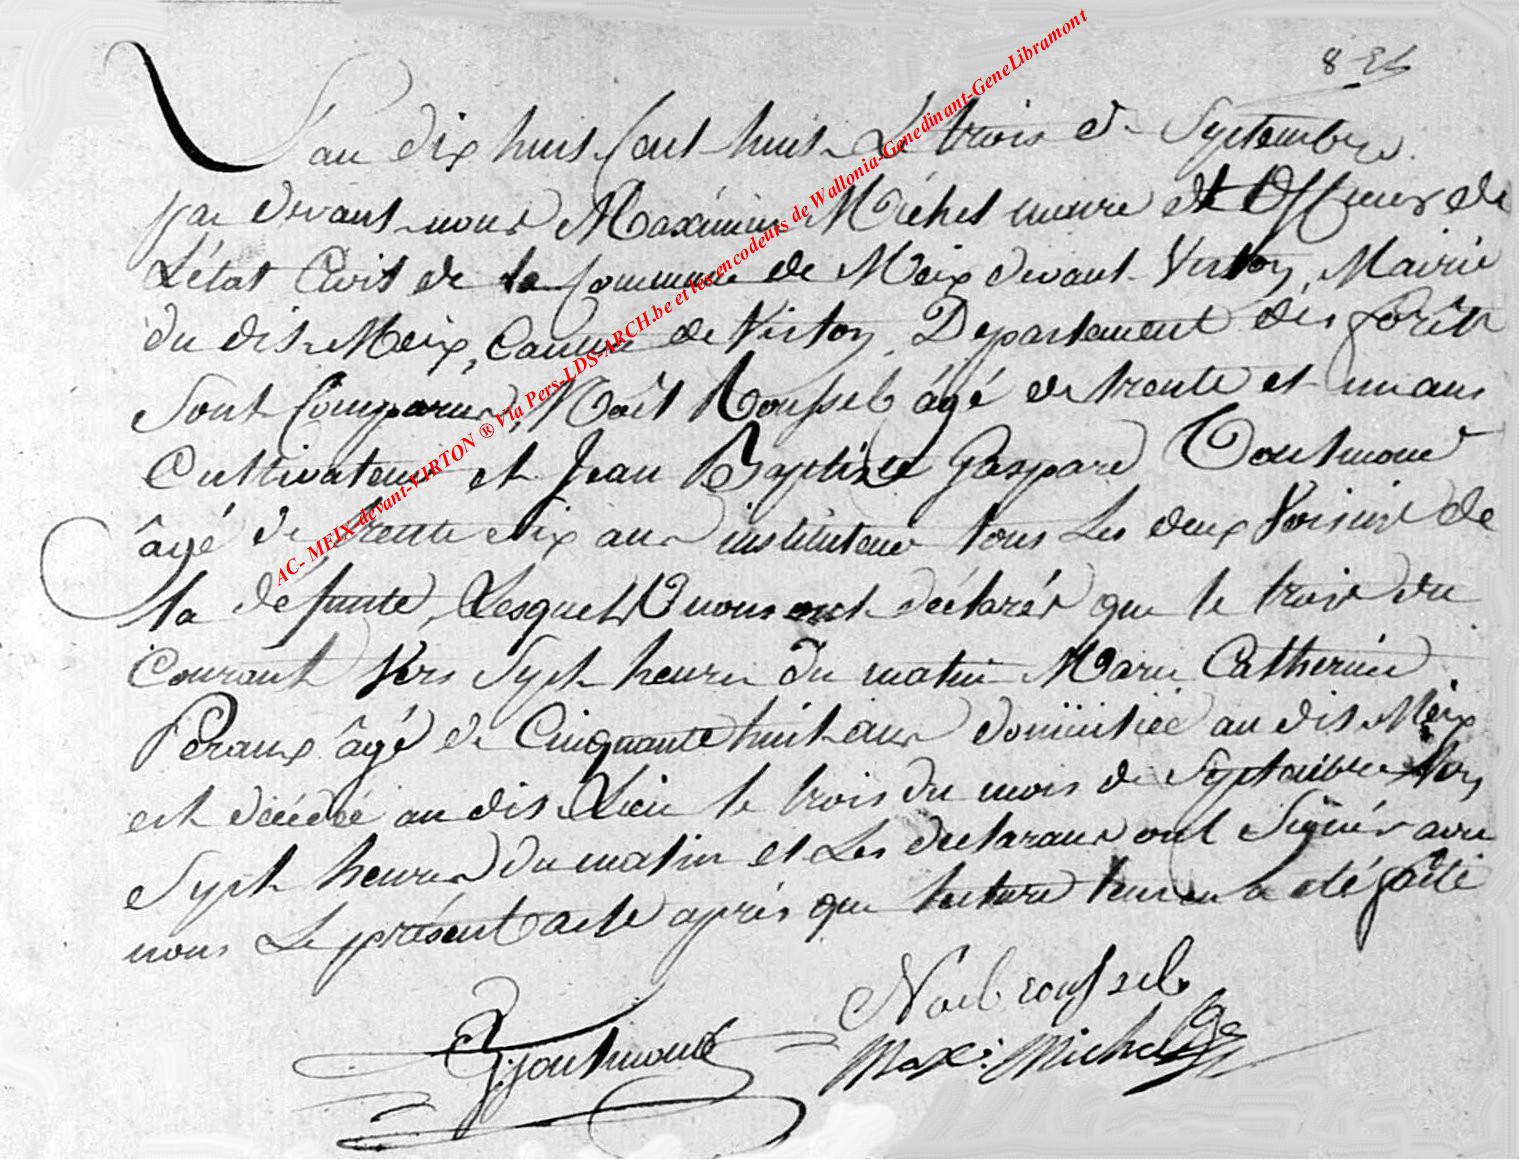 L'an dix huit Cent huit Le trois de Septembre
par devant nous Maximin Michel maire et Officier de
L'état Civil de la Commune de Meix devant Virton, Mairie
du dit Meix, Canton de Virton, Departement des forêts
Sont Comparus, Noël Roussel âgé de trente et un ans
Cultivateur et Jean Baptiste Gaspard Toutmond
âgé de trente six ans instituteur tous Les deux Voisins de
la défunte, Lesquels nous ont déclarés que le trois du
Courant Vers Sept heures du matin Marie Catherine
Peraux âgé de Cinquante huit ans domiciliée au dit Meix
est décédée au dit Lieu le trois du mois de Septembre
Sept heures du matin et Les declarans ont Signés avec
nous Le présent acte après que lecture leur en a été faite
Noel roussel
Max: Michel
AC- MEIX devant-VIRTON ® Via Pers-LDS-ARCH.be et les encodeurs de Wallonia-Genedinant-GeneLibramont